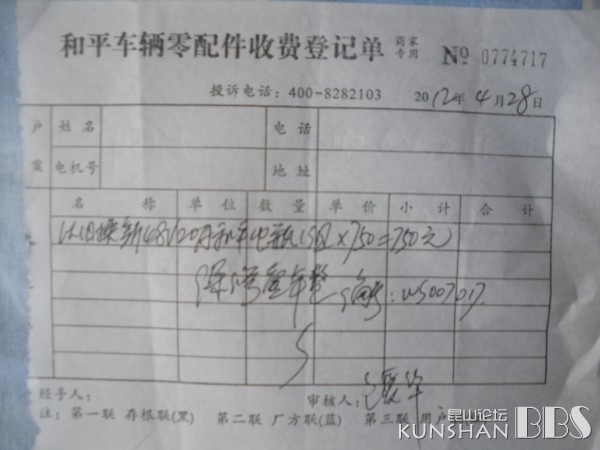 和平车辆零配件收费登记单 商家专用 № 0774717
投诉电话：400-8282103 2012年4月28日
户 姓名 电话
案 电机号 地址
名称 单位 数量 单价 小计 合计
以旧换新48V20A和平电瓶1组×750=750元
保 壹年整 编号：
经手人： 审核人：
注：第一联 存根联(黑) 第二联 厂方联(蓝) 第三联 用户
昆山论坛
KUNSHAN BBS